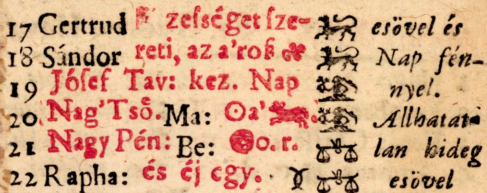 17 Gertrud zeſséget ſze- esövel és
18 Sándor reti, az a'roſs Nap fén-
19 Jóſef Tav: kez. Nap nyel.
20 Nag'Tsö. Ma: ☉a' Allhatat-
21 Nagy Pén: Be: o. r. lan hideg
22 Rapha: és éj egy. ♈ esövel